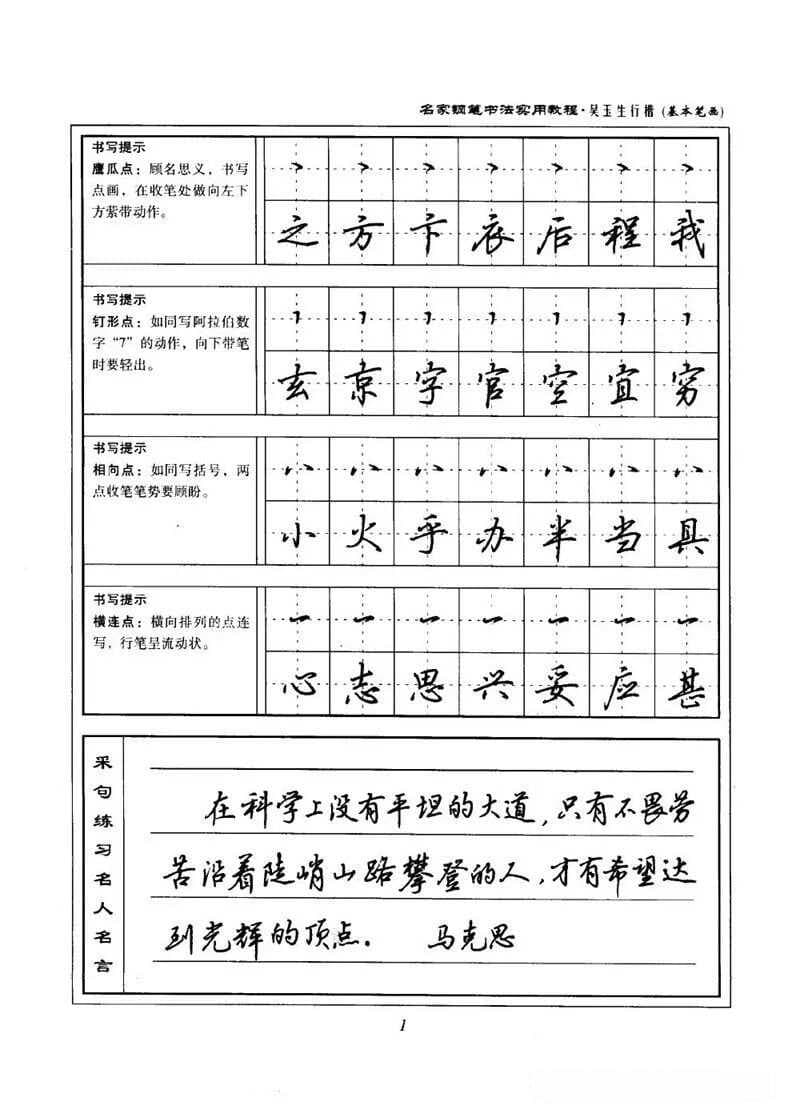 名家钢笔书法实用教程·吴玉生行楷(基本笔画)
书写提示
鹰瓜点：顾名思义，书写
点画，在收笔处做向左下
方萦带动作。
之方卞衣后程我
书写提示
钉形点：如同写阿拉伯数
字“7”的动作，向下带笔
时要轻出。
玄京字官空宜穷
书写提示
相向点：如同写括号，两
点收笔笔势要顾盼。
小火乎办半当具
书写提示
横连点：横向排列的点连
写，行笔呈流动状。
心志思兴妥应甚
采句练习名人名言
在科学上没有平坦的大道，只有不畏劳
苦沿着陡峭山路攀登的人，才有希望达
到光辉的顶点． 马克思
1